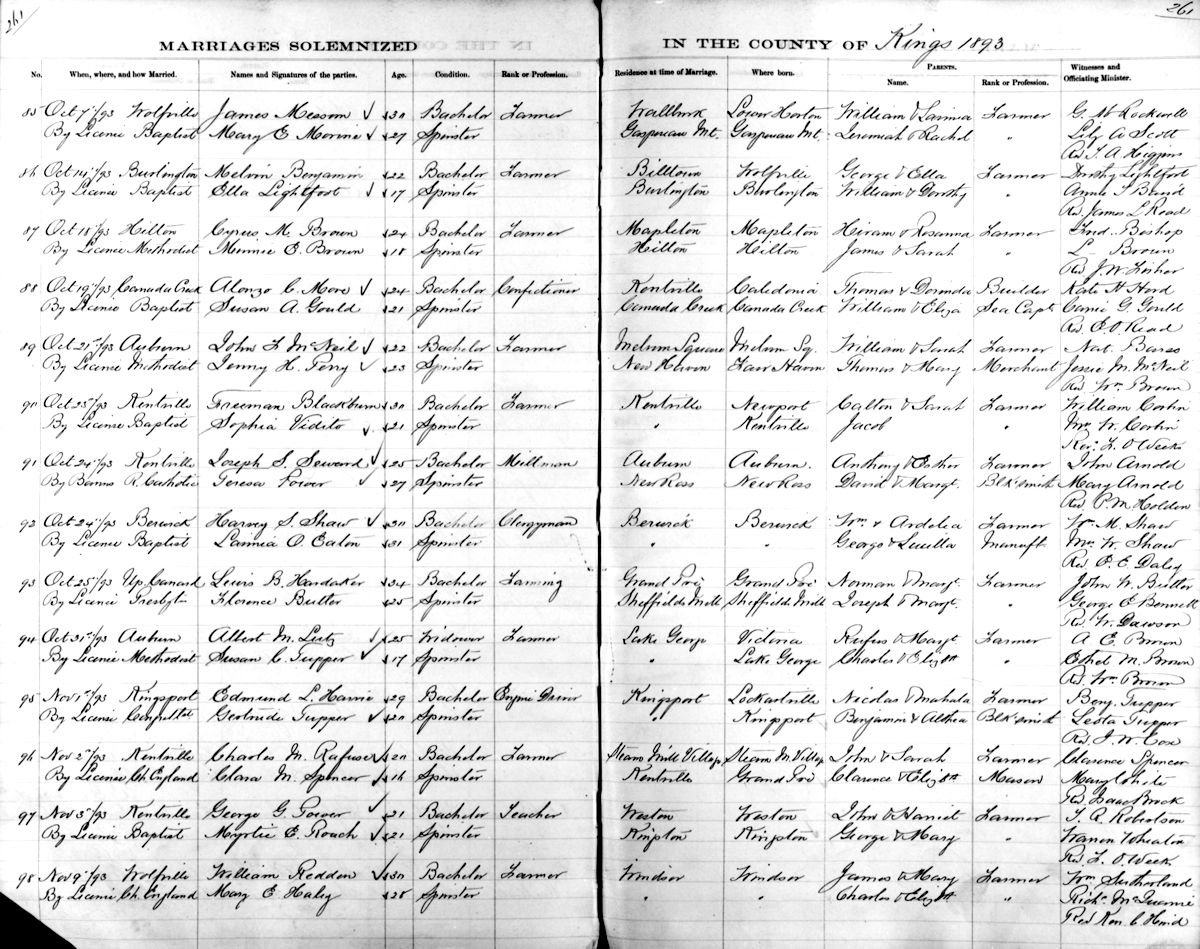 261
261
MARRIAGES SOLEMNIZED IN THE COUNTY OF Kings 1893
PARENTS.
No. When, where, and how Married. Names and Signatures of the parties. Age. Condition. Rank or Profession. Residence at time of Marriage. Where born. Name. Rank or Profession. Witnesses and Officiating Minister.
85 Oct 7th/93 Wolfville James Messom 30 Bachelor Farmer Wallbrook Lower Horton William & Lavinia Farmer G. W Rockwell
By Licence Baptist Mary E Morine 27 Spinster Gaspereau Mt. Gaspereau Mt. Jeremiah & Rachel " Lily A Scott
Rev T. A. Higgins
86 Oct 14th/93 Burlington Melvin Benjamin 22 Bachelor Farmer Billtown Wolfville George & Ella Farmer Dorothy Lightfoot
By Licence Baptist Ella Lightfoot 17 Spinster Burlington Burlington William & Dorothy " Annie
Rev. James L Read
87 Oct 18th/93 Hilton Cyrus M. Brown 24 Bachelor Farmer Mapleton Mapleton Hiram & Rosanna Farmer Fred. Bishop
By Licence Methodist Minnie E. Brown 18 Spinster Hilton Hilton James & Sarah L Brown
Rev J. W. Fisher
88 Oct 19th/93 Canada Creek Alonzo C. More 24 Bachelor Confectioner Kentville Caledonia Thomas & Dorinda Builder Kate H Hord
By Licence Baptist Susan A. Gould 21 Spinster Canada Creek Canada Creek William & Eliza Sea Capt Carrie G. Gould
Rev. E. O. Read
89 Oct 21st/93 Auburn John F McNeil 22 Bachelor Farmer Melvern Square Melvern Sq. William & Sarah Farmer Nat. Barss
By Licence Methodist Jenny H. Perry 23 Spinster New Haven Fair Haven Thomas & Mary Merchant Jessie M. McNeil
Rev Wm Brown
90 Oct 23d/93 Kentville Freeman Blackburn 30 Bachelor Farmer Kentville Newport Calton & Sarah Farmer William Corbin
By Licence Baptist Sophia Vidito 21 Spinster " Kentville Jacob Mrs W. Corbin
Rev. L. O Weeks
91 Oct 24th/93 Kentville Joseph S. Seward 25 Bachelor Millman Auburn Auburn. Anthony & Esther Farmer John Arnold
By Banns R. Catholic Teresa Power 27 Spinster New Ross New Ross David & Margt. Blksmith Mary Arnold
Rev P. M. Holden
92 Oct 24th/93 Berwick Harvey S. Shaw 30 Bachelor Clergyman Berwick Berwick Wm. & Ardelia Farmer Wm M. Shaw
By Licence Baptist Laimia O. Eaton 31 Spinster " " George & Luella Manuft Mrs W. Shaw
Rev. P. E. Daley
93 Oct 25th/93 Up. Canard Lewis B. Hardaker 34 Bachelor Farming Grand Pré Grand Pré Norman & Margt. Farmer John W. Butler
By Licence Presbytn Florence Butler 25 Spinster Sheffields Mills Sheffields Mills Joseph & Margt. " George E Bennett
Rev. W. Dawson
94 Oct 31st/93 Auburn Albert M. Lutz 25 Widower Farmer Lake George Victoria Rufus & Margt Farmer A E. Brown
By Licence Methodist Susan C. Tupper 17 Spinster " Lake George Charles & Elizth " Ethel M. Brown
Rev. Wm. Brown
95 Nov 1st/93 Kingsport Edmund L. Harris 29 Bachelor Engine Driver Kingsport Lockartville Nicolas & Mahala Farmer Benj. Tupper
By Licence Gertrude Tupper 20 Spinster " Kingsport Benjamin & Althea Blksmith Leota Tupper
Rev. J. W. Cox
96 Nov 2nd/93 Kentville Charles M. Rafuse 20 Bachelor Farmer Steam Mill Village Steam M. Village John & Sarah Farmer Clarence Spencer
By Licence Ch. England Clara M. Spencer 16 Spinster Kentville Grand Pré Clarence & Elizth Mason Mary White
Rev Isaac Brock
97 Nov 3rd/93 Kentville George G. Power 21 Bachelor Teacher Weston Weston John & Harriet Farmer J. R. Robertson
By Licence Baptist Myrtle E. Roach 21 Spinster Kingston Kingston George & Mary " Warren Wheaton
Rev. L. O. Week
98 Nov 9th/93 Wolfville William Redden 30 Bachelor Farmer Windsor Windsor James & Mary Farmer Wm Sutherland
By Licence Ch. England Mary E Haley 28 Spinster " " Charles & Elizth " Richd
Rev Ken. C Hind